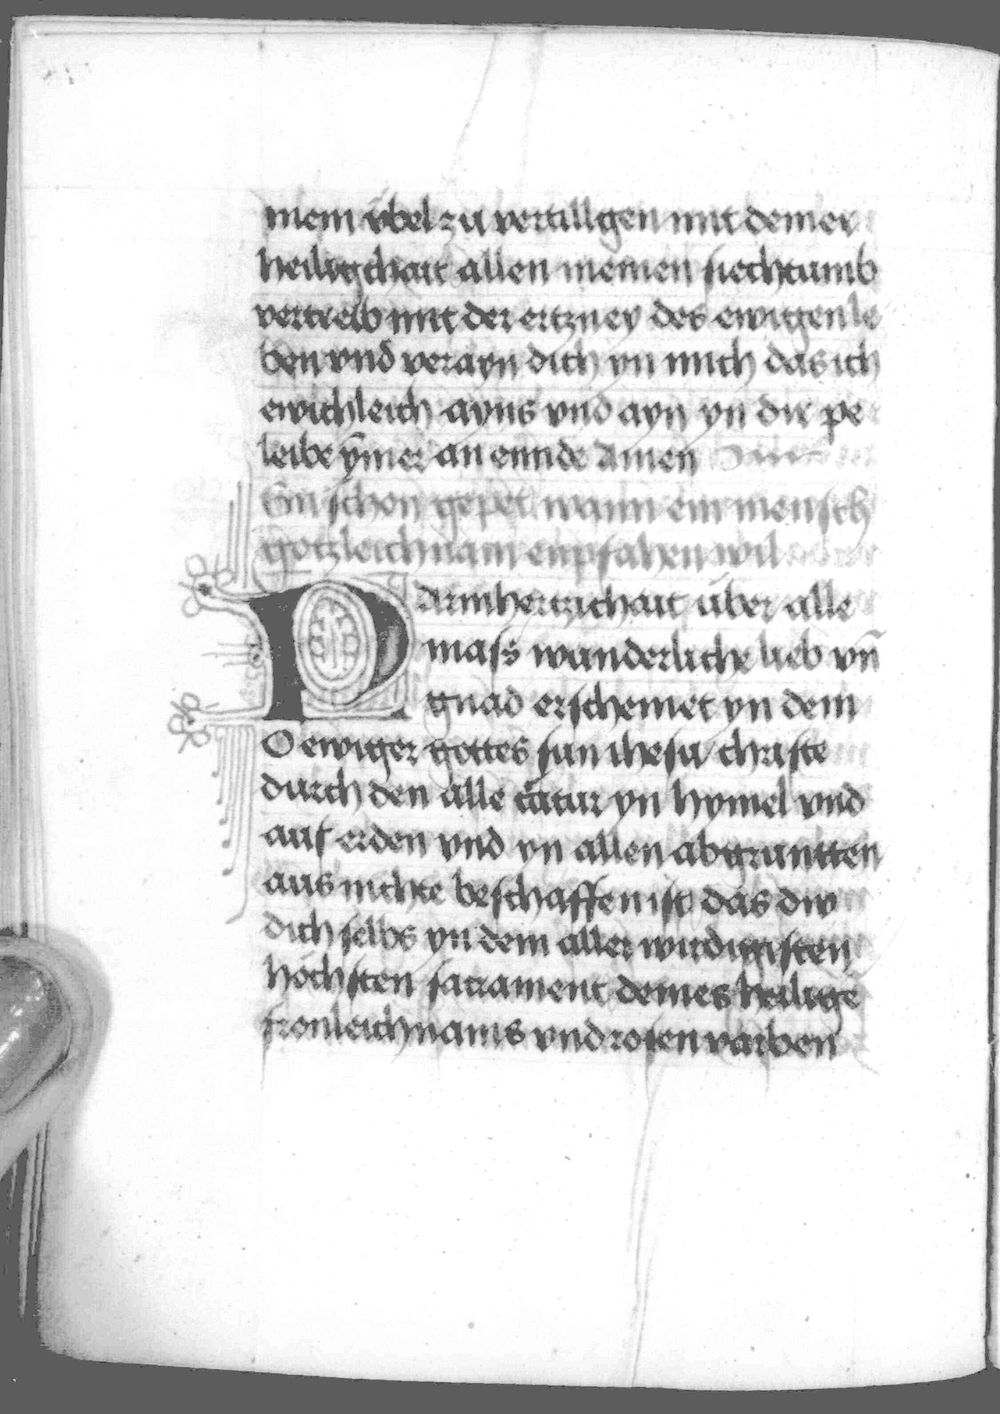 mein vbel zu vertillgen mit deiner
heiligchait allen meinen siechtumb
vertreib mit der ertzney des ewigen le
ben vnd verayn dich yn mich das ich
ewichleich ayns vnd ayn yn dir pe
leibe ȳmer an ennde Amen
Ein schon gepet wann ein mensch
gotzleichnam enpfahen wil
Parmhertzichait über alle
mass wunderliche lieb vn̄
gnad erscheinet yn dem
O ewiger gottes sun ihesu christe
durch den alle tātur yn hymel vnd
auf erden vnd yn allen abgruntten
aus nichte beschaffen ist das dw
dich selbs yn dem aller wirdigisten
höchsten sacrament deines heilige
fronleichnams vnd rosen varben